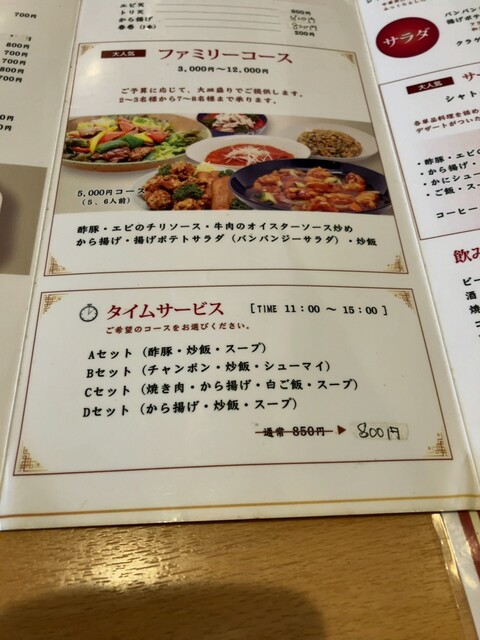 700円
800円
700円
800円
700円
700円
エビ天
トリ天
から揚げ
春巻(1本)
800円
800円
200円
大人気 ファミリーコース
3,000円〜12,000円
ご予算に応じて、大皿盛りでご提供します。
2〜3名様から7〜8名様まで承ります。
5,000円コース
(5、6人前)
酢豚・エビのチリソース・牛肉のオイスターソース炒め
から揚げ・揚げポテトサラダ(バンバンジーサラダ)・炒飯
タイムサービス [TIME 11:00 〜 15:00]
ご希望のコースをお選びください。
Aセット(酢豚・炒飯・スープ)
Bセット(チャンポン・炒飯・シューマイ)
Cセット(焼き肉・から揚げ・白ご飯・スープ)
Dセット(から揚げ・炒飯・スープ)
通常 850円 ▶ 800円
サラダ
バンバン
揚げポテ
クラゲ
大人気
シャト
各単品料理を詰め
デザートがついた
・酢豚・エビの
・から揚げ・
・かにシュー
・ご飯・ス
コーヒー
飲み
ビー
酒
焼